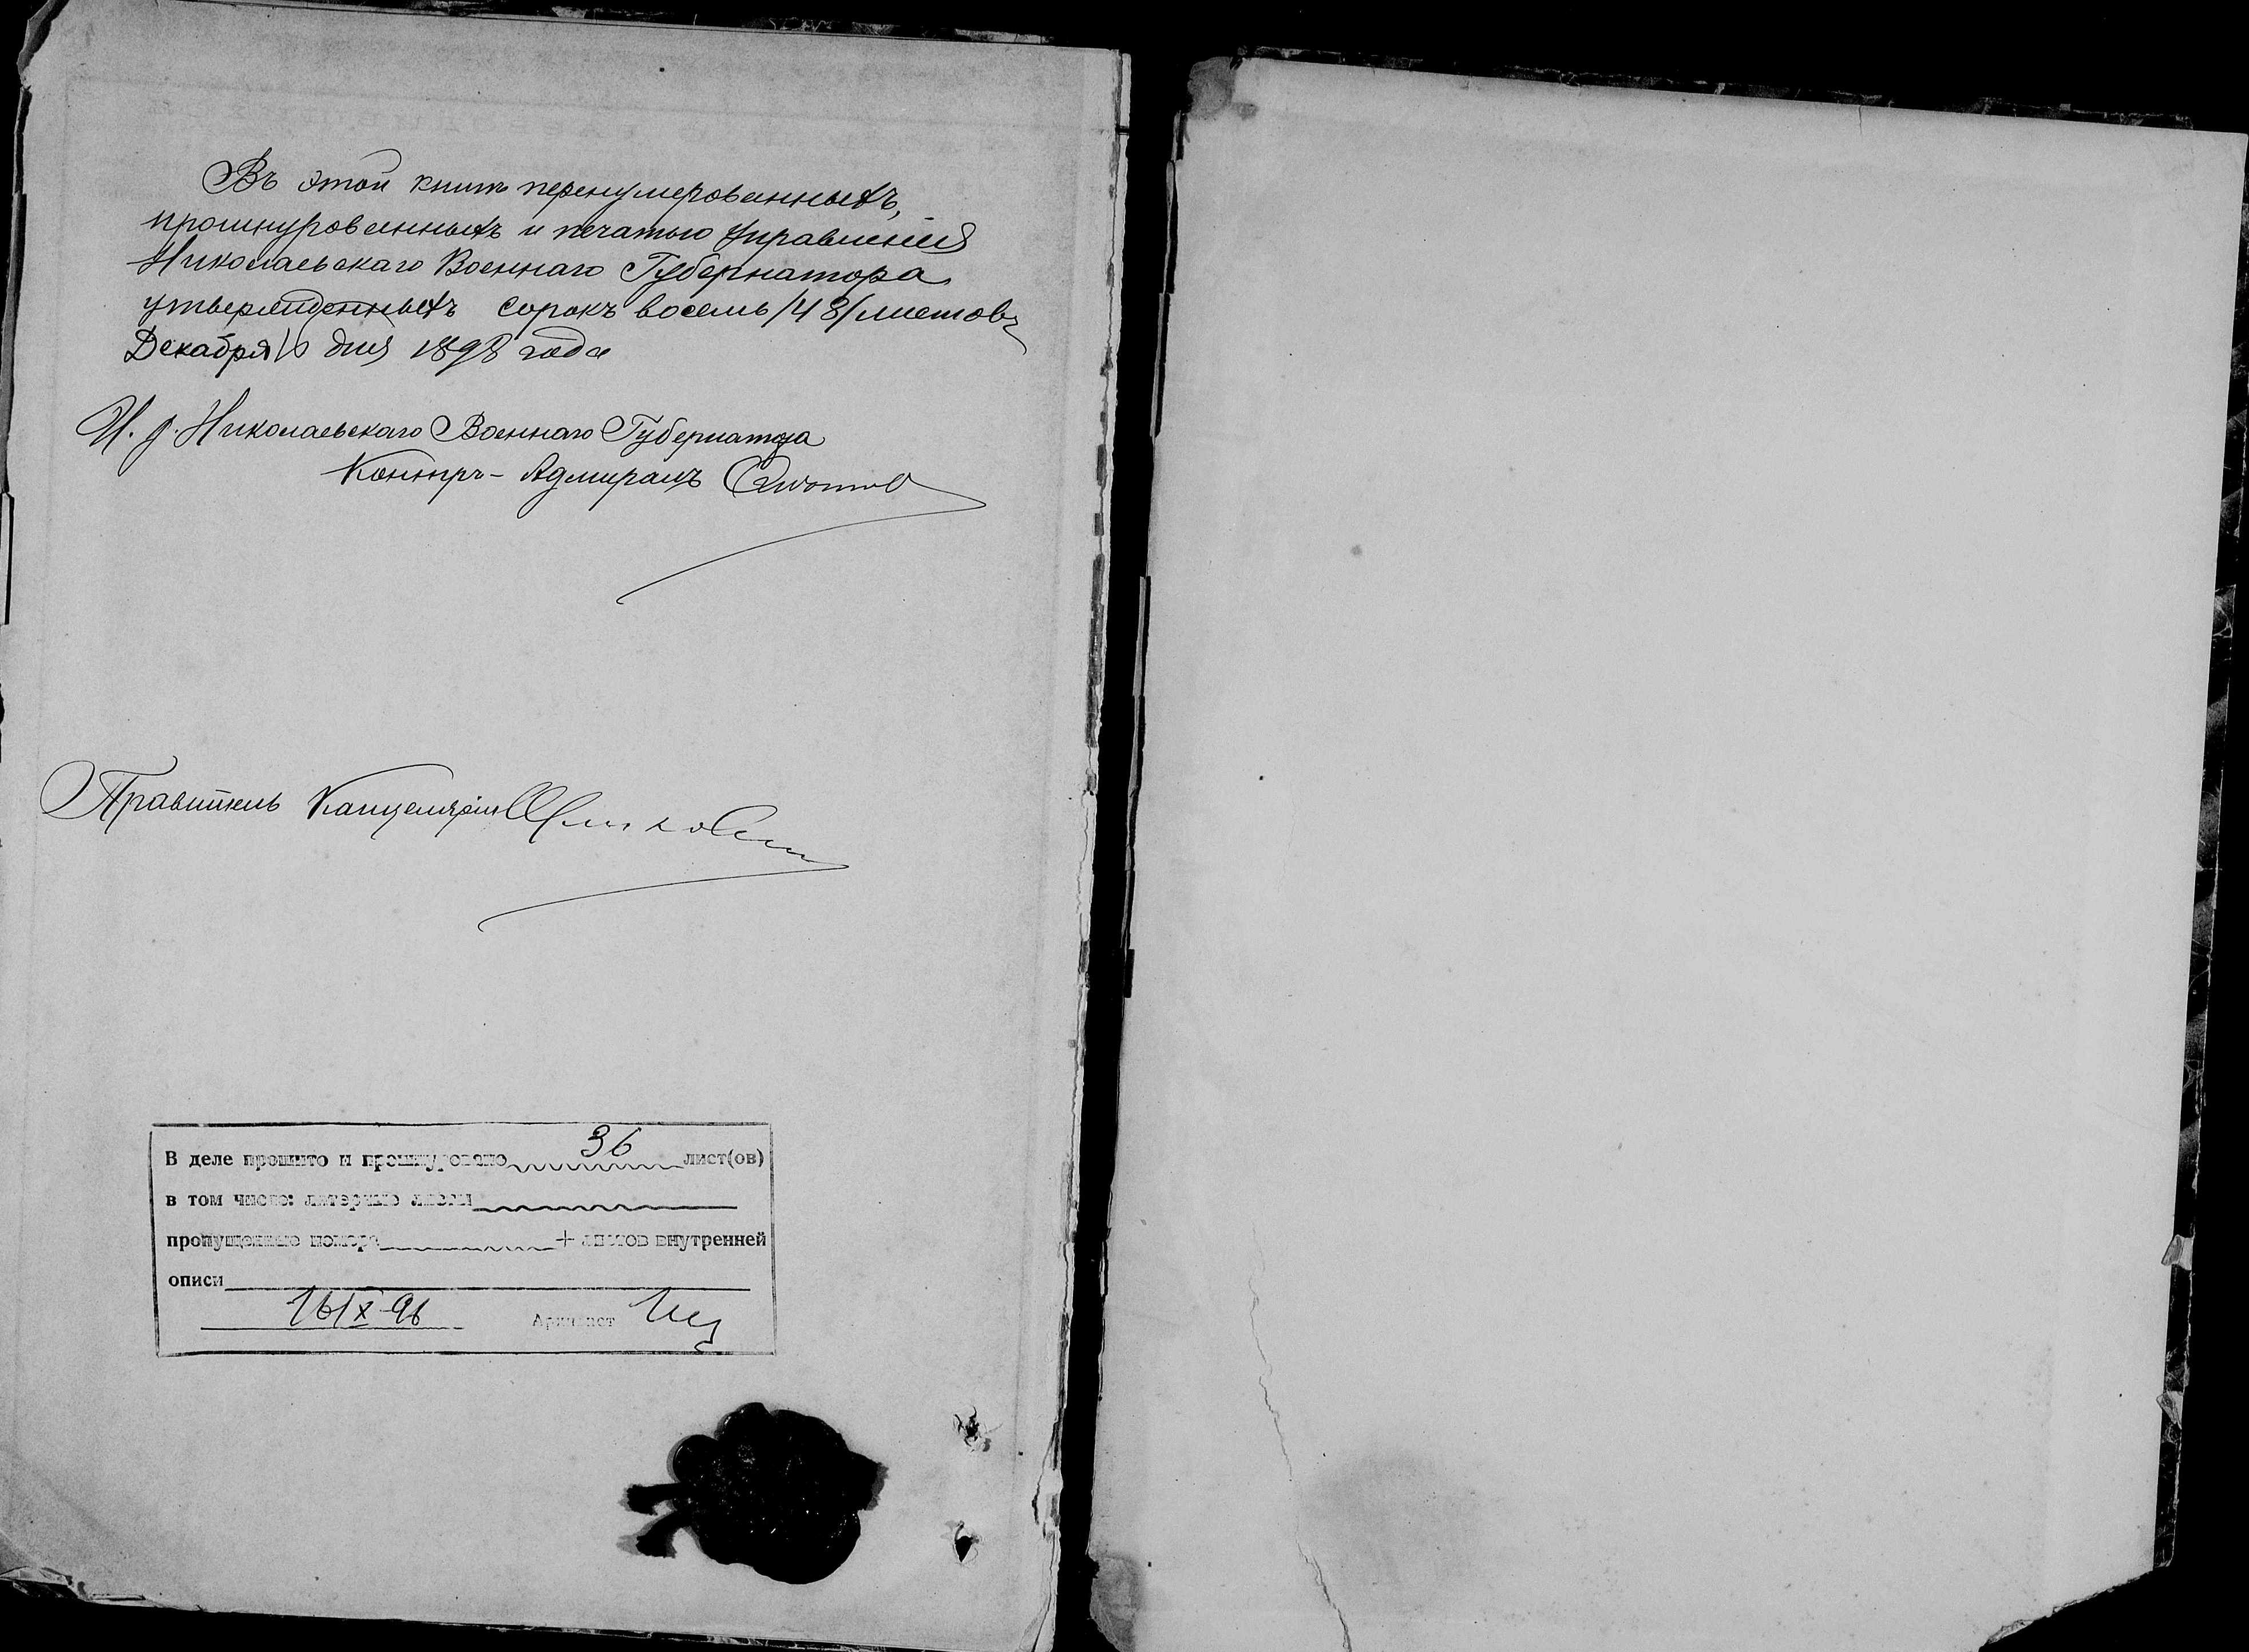 Въ этой книгѣ перенумерованныхъ,
прошнурованныхъ и печатью Управленія
Николаевскаго Военнаго Губернатора
утвержденныхъ сорокъ восемь /48/ листовъ
Декабря 10 дня 1898 года
И. д. Николаевскаго Военнаго Губернатора
Контръ-Адмиралъ
Правитель Канцеляріи
В деле прошито и прошнуровано 36 лист(ов)
в том числе: литерные листы
пропущенные номера + листов внутренней
описи
16/X-96 Архивист